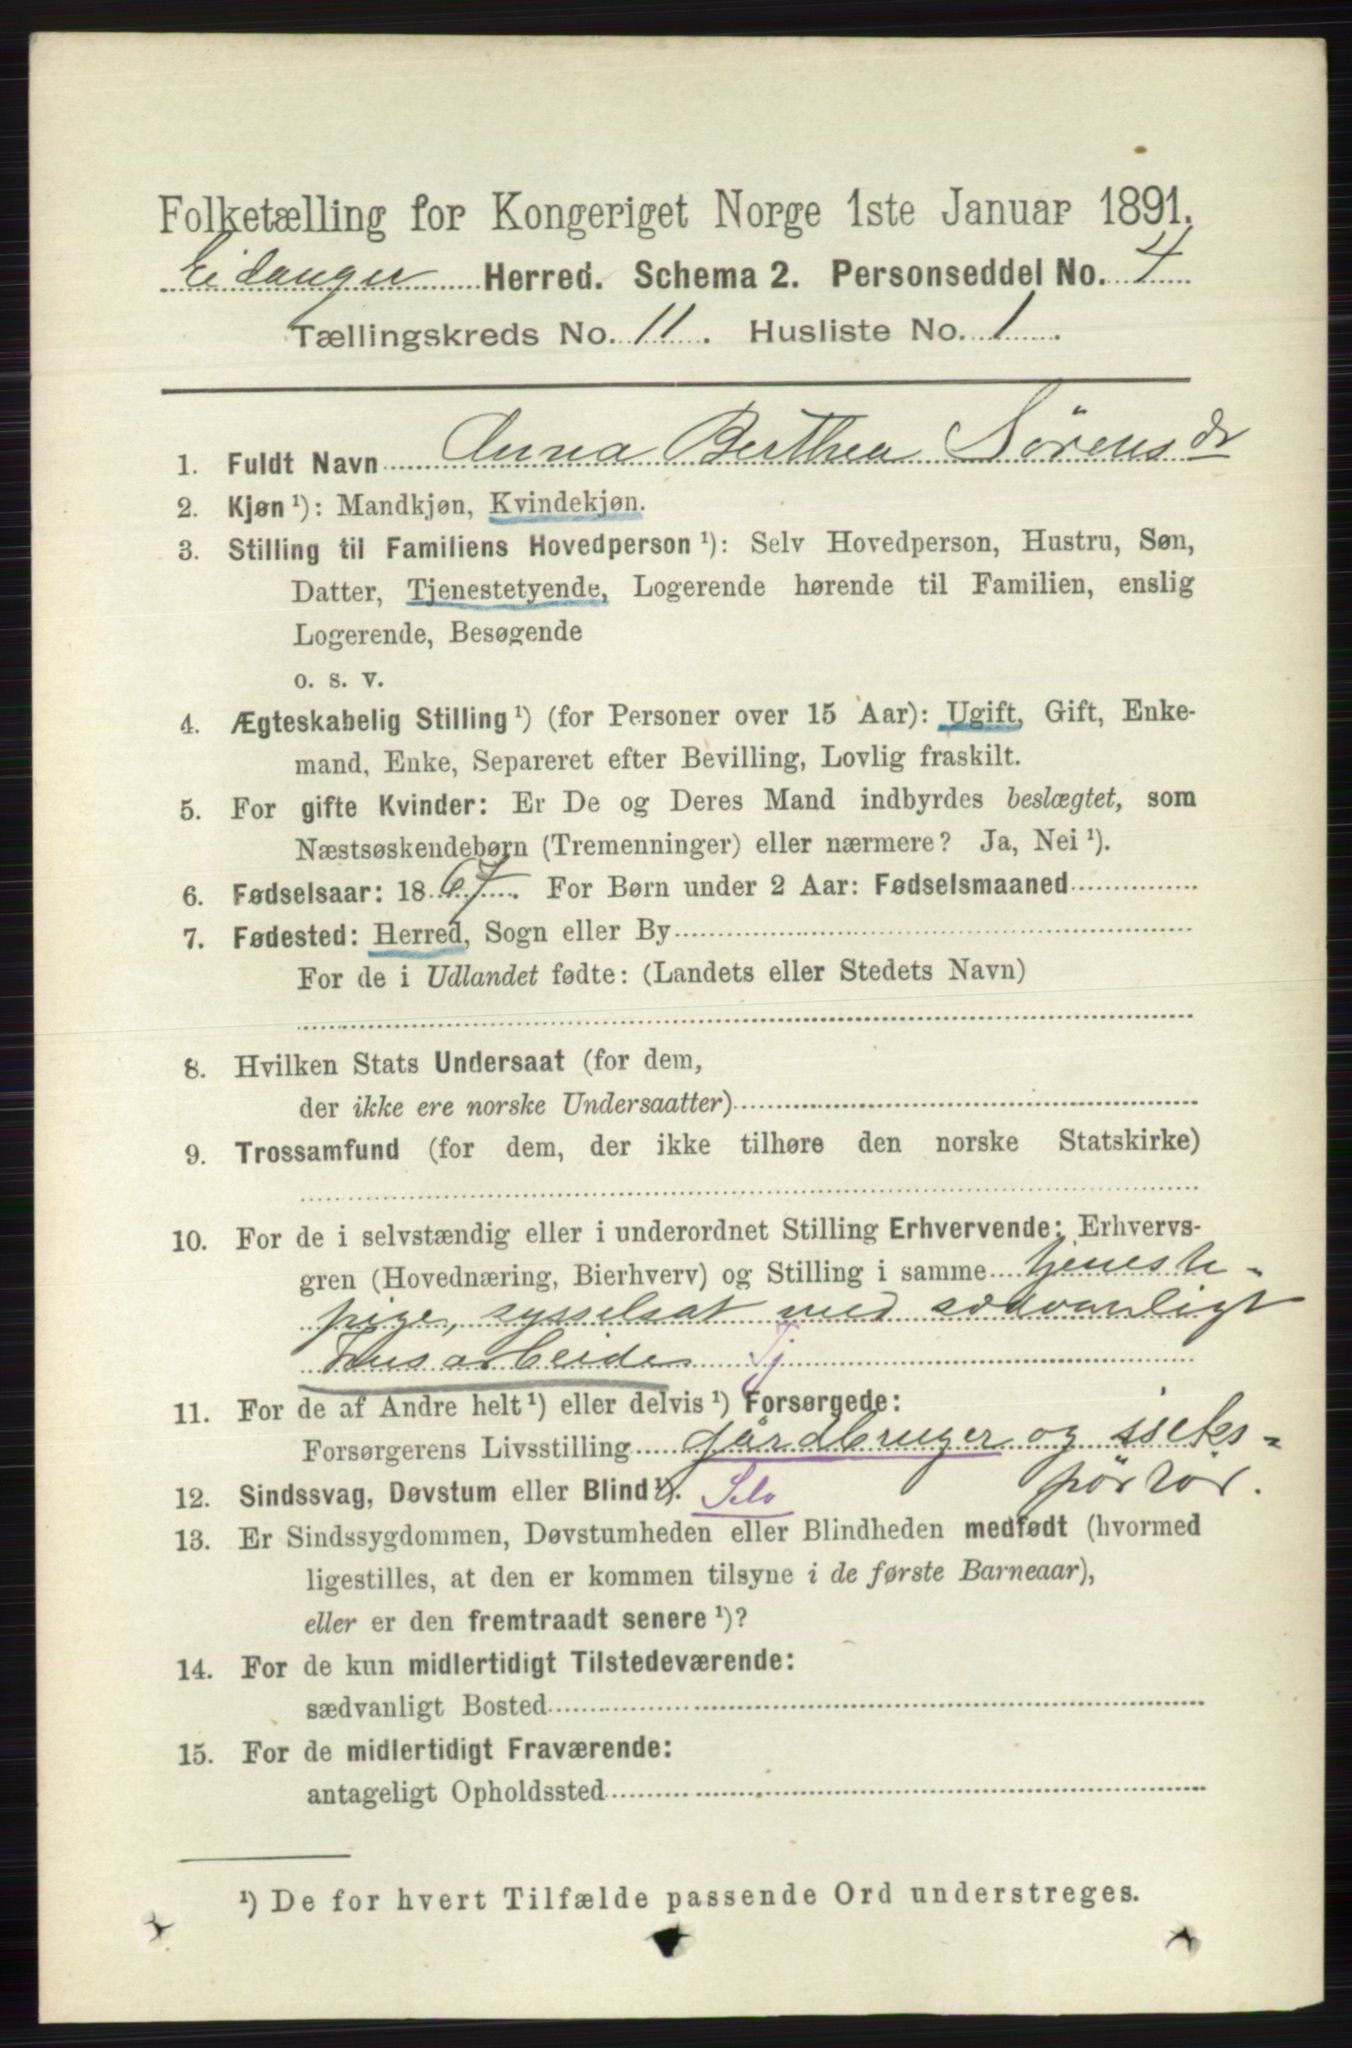 Folketælling for Kongeriget Norge 1ste Januar 1891.
Eidanger Herred. Schema 2. Personseddel No. 4
Tællingskreds No. 11. Husliste No. 1.
1. Fuldt Navn Anna Berthea Sørensdr
2. Kjøn ¹): Mandkjøn, Kvindekjøn.
3. Stilling til Familiens Hovedperson ¹): Selv Hovedperson, Hustru, Søn,
Datter, Tjenestetyende, Logerende hørende til Familien, enslig
Logerende, Besøgende
o. s. v.
4. Ægteskabelig Stilling ¹) (for Personer over 15 Aar): Ugift, Gift, Enke-
mand, Enke, Separeret efter Bevilling, Lovlig fraskilt.
5. For gifte Kvinder: Er De og Deres Mand indbyrdes beslægtet, som
Næstsøskendebørn (Tremenninger) eller nærmere? Ja, Nei ¹).
6. Fødselsaar: 1867. For Børn under 2 Aar: Fødselsmaaned
7. Fødested: Herred, Sogn eller By
For de i Udlandet fødte: (Landets eller Stedets Navn)
8. Hvilken Stats Undersaat (for dem,
der ikke ere norske Undersaatter)
9. Trossamfund (for dem, der ikke tilhøre den norske Statskirke)
10. For de i selvstændig eller i underordnet Stilling Erhvervende: Erhvervs-
gren (Hovednæring, Bierhverv) og Stilling i samme tjeneste-
pige, sysselsat med sædvanligt
Husarbeide Tj
11. For de af Andre helt ¹) eller delvis ¹) Forsørgede:
Forsørgerens Livsstilling Gårdbruger og
12. Sindssvag, Døvstum eller Blind ¹). Selv
13. Er Sindssygdommen, Døvstumheden eller Blindheden medfødt (hvormed
ligestilles, at den er kommen tilsyne i de første Barneaar),
eller er den fremtraadt senere ¹)?
14. For de kun midlertidigt Tilstedeværende:
sædvanligt Bosted
15. For de midlertidigt Fraværende:
antageligt Opholdssted
¹) De for hvert Tilfælde passende Ord understreges.